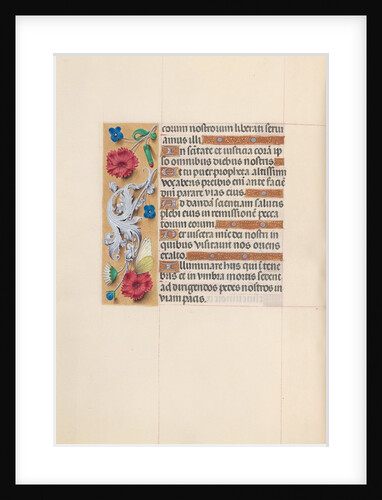 corum nostrorum liberati serui
amus illi
In scitate et iusticia corā ip
so omnibus diebus nostris
Et tu puer propheta altissimi
vocaberis preibis eni ante faciē
dm̄ parare vias eius
Ad dandā scientiam salutis
plebi eius in remissionē pecca
torum eorum
Per viscera mīe dei nostri in
quibus visitauit nos oriens
ex alto
Illuminare hiis qui ī tene
bris et in vmbra mortis sedent
ad dirigendos pedes nostros in
viam pacis